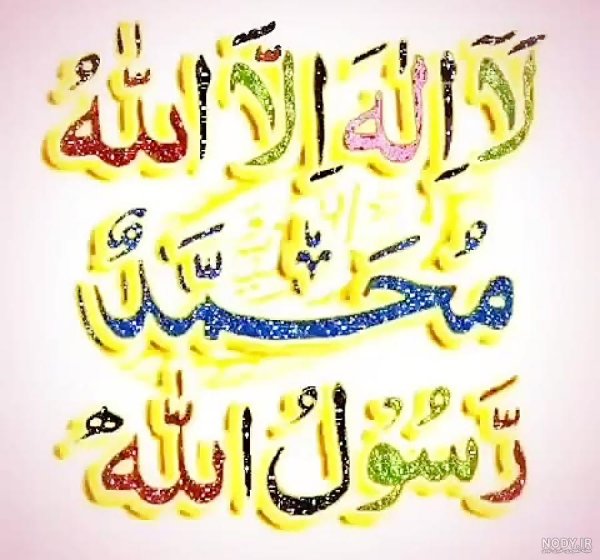 لَآ اِلٰهَ اِلَّا اللّٰهُ
مُحَمَّدٌ
رَّسُوْلُ اللّٰهِ
NODY.IR